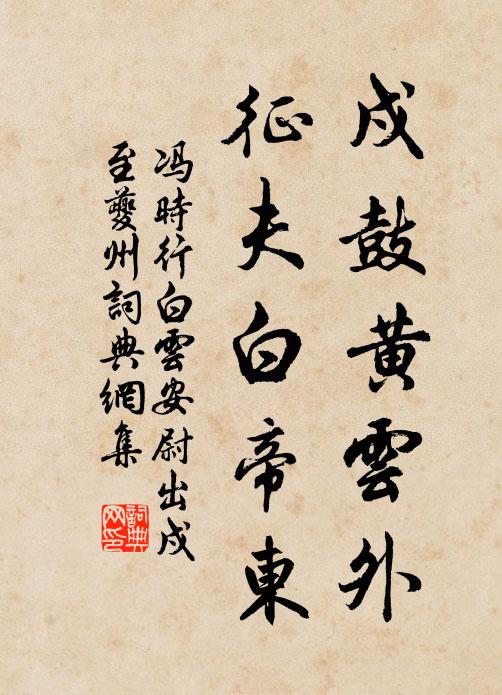 戍鼓黃雲外
征夫白帝東
馮時行白雲安尉出戍
至夔州詞典網集
詞典
网印